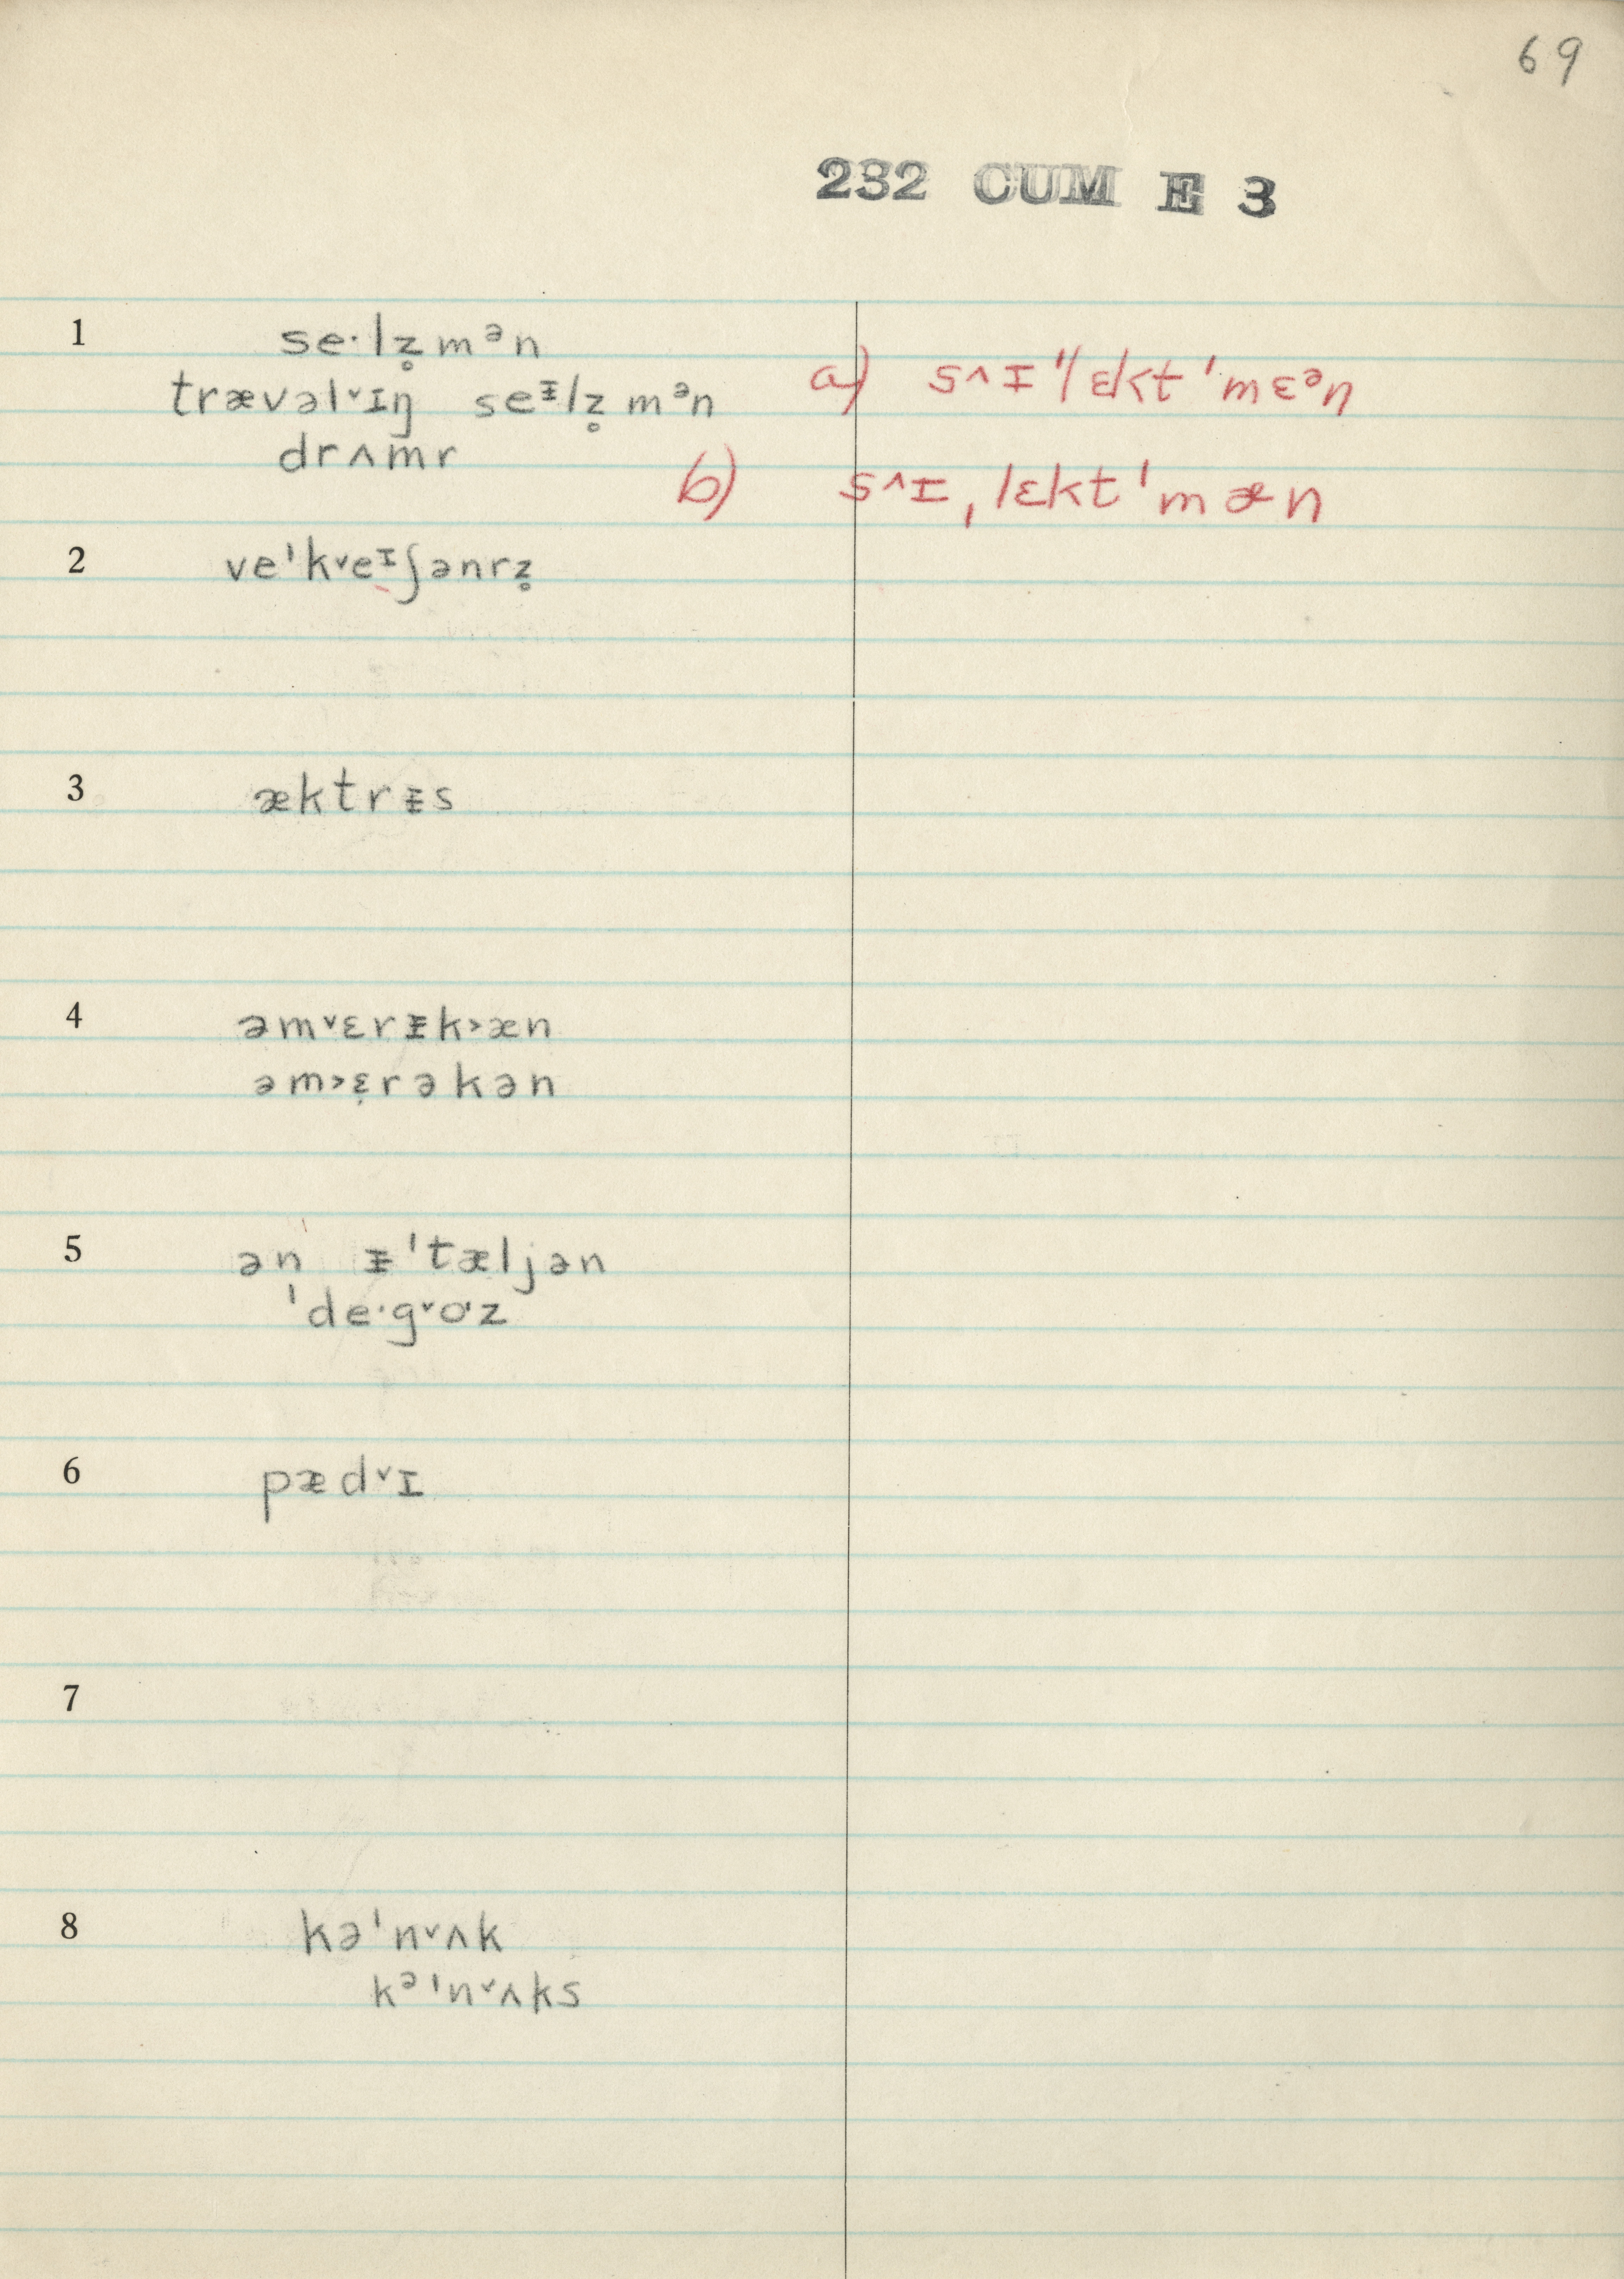 69
232 CUM E 3
1 se·lz̥mᵊn
trævəlˇɪŋ seᵻlz̥mᵊn
drʌmr
a) s^ɪ"lɛkt'mɛᵊn
b) s^ɪˌlɛkt'mæn
2 ve'kˇeᶦʃənrz̥
3 æktrᵻs
4 əmˇɛrᵻk˃æn
əm˃ɛ̣rəkən
5 ən ᵻ'tæljən
'de·gˇoˑz
6 pædˇɪ
7
8 kə'nˇʌk
kᵊ'nˇʌks